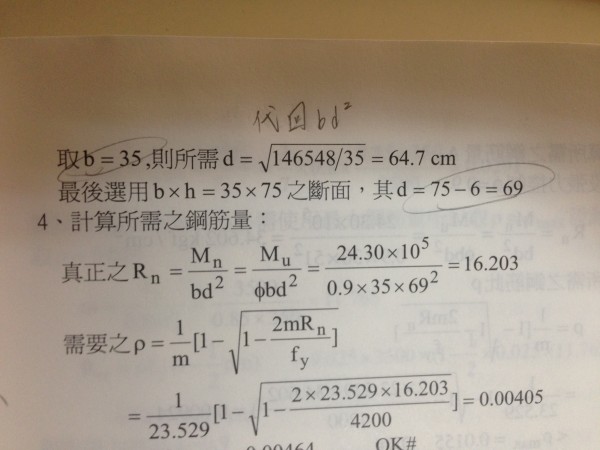 代回bd²
取b = 35,則所需d = √146548/35 = 64.7 cm
最後選用b×h = 35×75之斷面，其d = 75−6 = 69
4、計算所需之鋼筋量：
真正之 Rn = Mn/bd² = Mu/ϕbd² = 24.30×10⁵/0.9×35×69² = 16.203
需要之 ρ = 1/m [1−√1−2mRn/fy]
= 1/23.529 [1−√1−2×23.529×16.203/4200] = 0.00405
0.00464 OK#